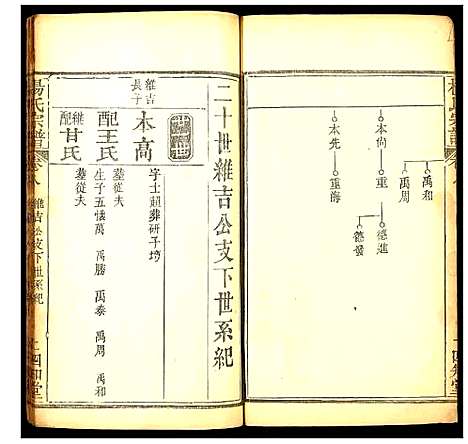 禹和
禹周
本尚 重 德進
德發
本先 重海
楊氏宗譜 卷八 十 四知堂
二十世維吉公支下世系紀
維吉長子
本高
字士超葬研子塆
配王氏
墓從夫
生子五 懷萬 禹勝 禹泰 禹周 禹和
繼配甘氏
墓從夫
楊氏宗譜 卷八 維吉公支下世系紀 四知堂